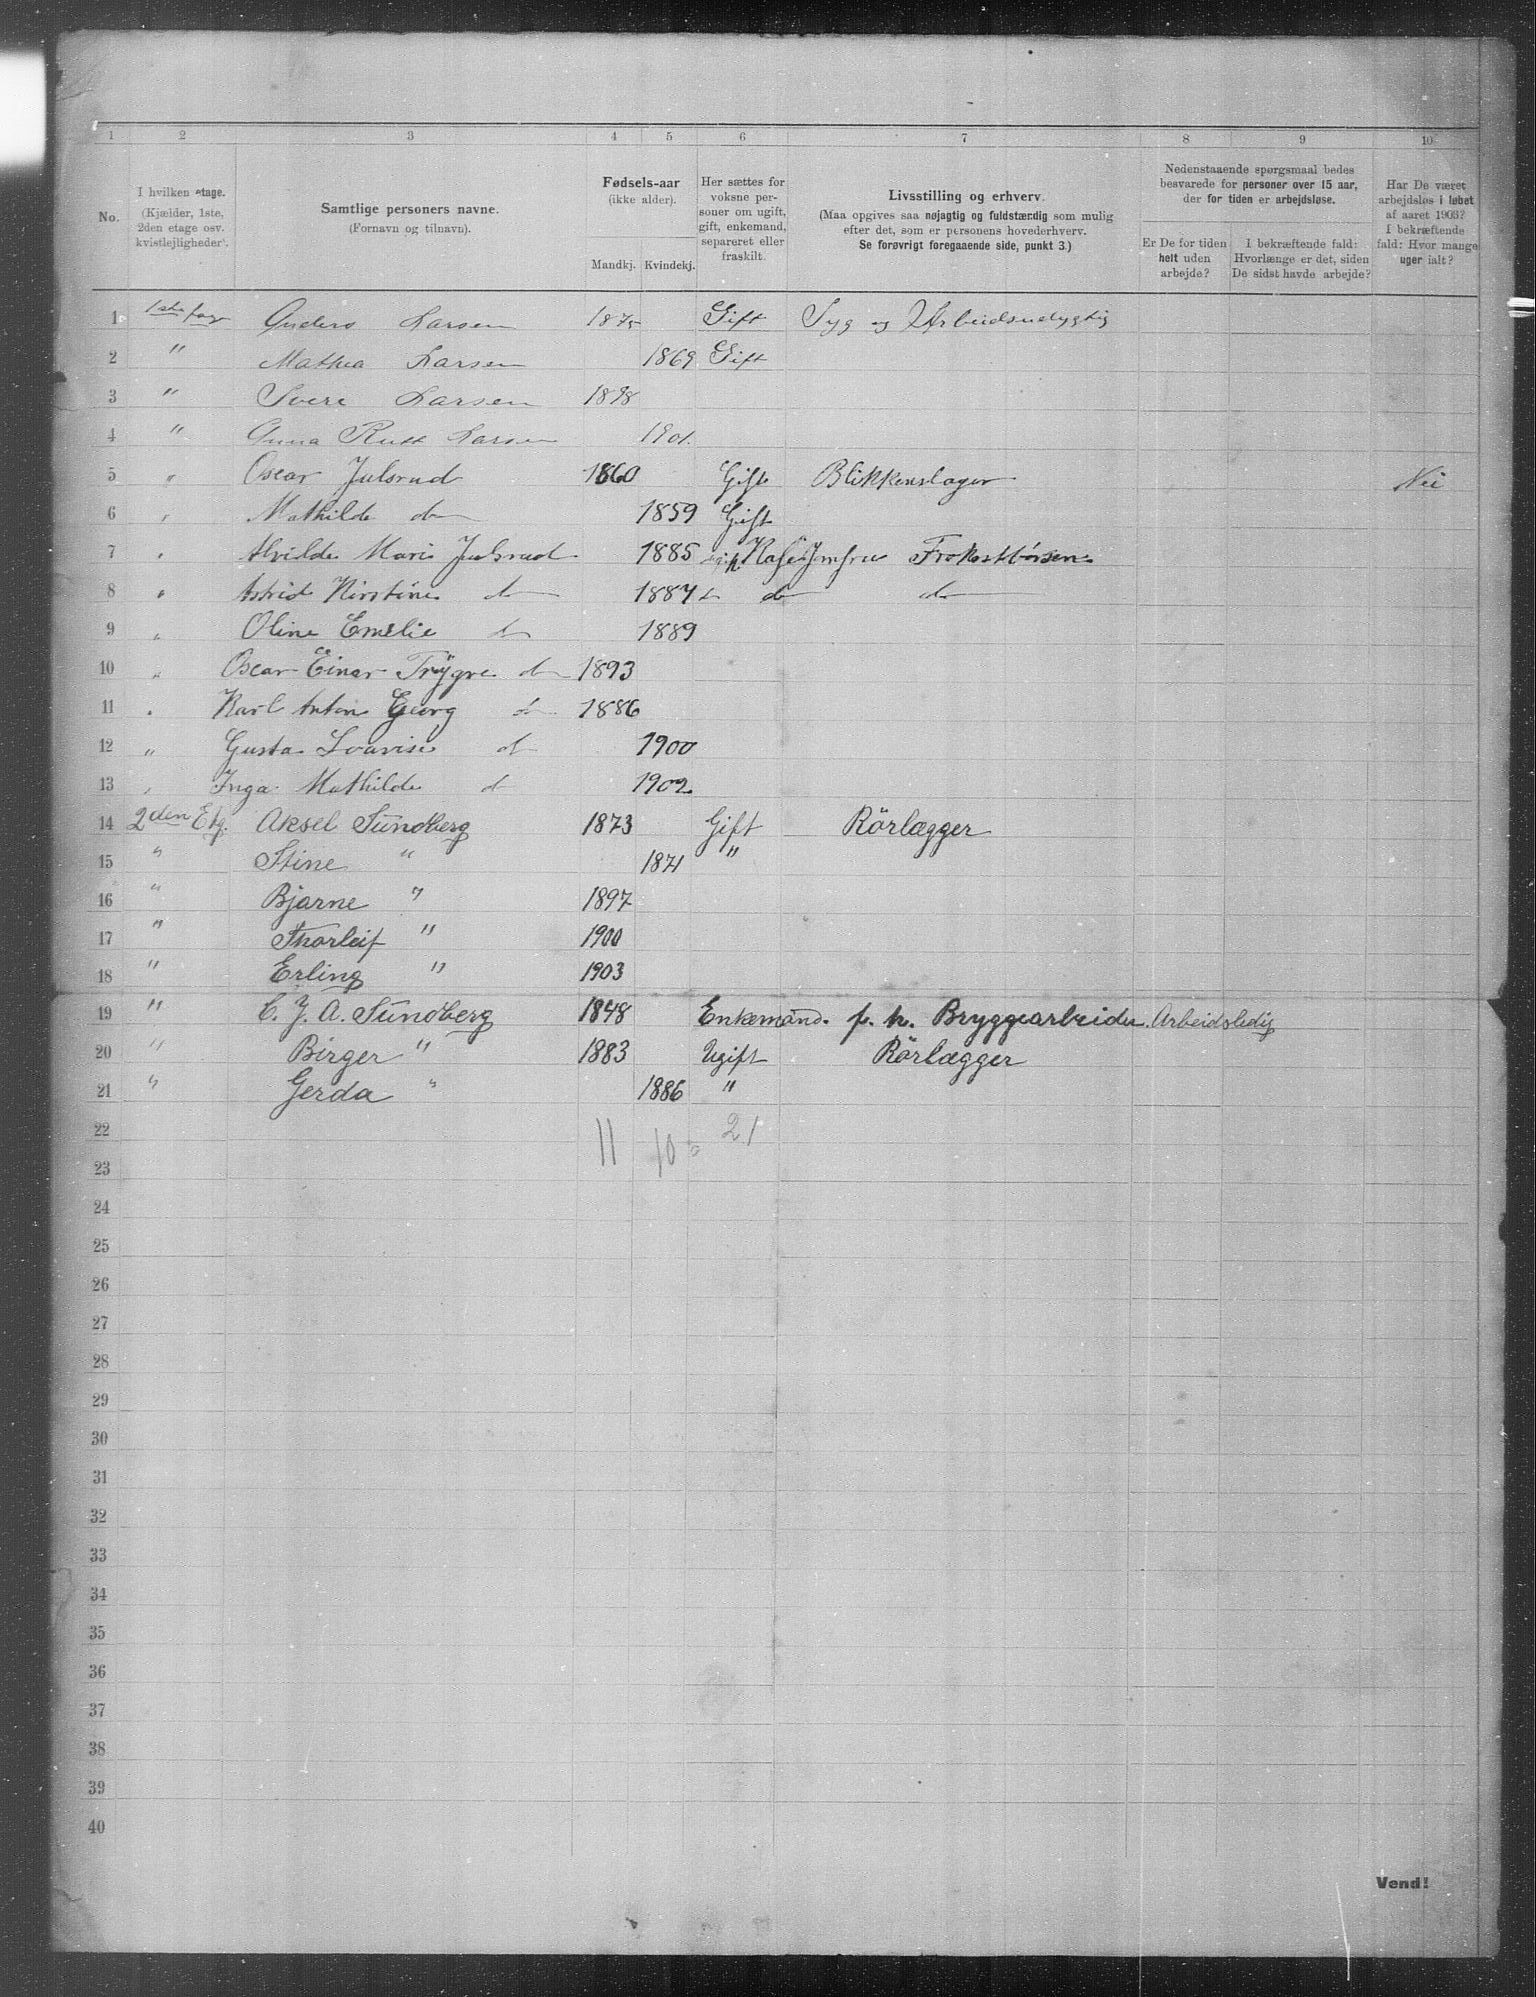 1 2 3 4 5 6 7 8 9 10
No.
I hvilken etage.
(Kjælder, 1ste,
2den etage osv.
kvistlejligheder).
Samtlige personers navne.
(Fornavn og tilnavn).
Fødsels-aar
(ikke alder).
Mandkj. Kvindekj.
Her sættes for
voksne per-
soner om ugift,
gift, enkemand,
separeret eller
fraskilt.
Livsstilling og erhverv.
(Maa opgives saa nøjagtig og fuldstændig som mulig
efter det, som er personens hovederhverv.
Se forøvrigt foregaaende side, punkt 3.)
Nedenstaaende spørgsmaal bedes
besvarede for personer over 15 aar,
der for tiden er arbejdsløse.
Er De for tiden
helt uden
arbejde?
I bekræftende fald:
Hvorlænge er det, siden
De sidst havde arbejde?
Har De været
arbejdsløs i løbet
af aaret 1903?
I bekræftende
fald: Hvor mange
uger ialt?
1 1ste Anders Larsen 1875 Gift Syg og Arbeidsudygtig
2 " Mathea Larsen 1869 Gift
3 " Svere Larsen 1898
4 " Anna Rutt Larsen 1901.
5 " Oscar Julsrud 1860 Gift Blikkenslager Nei
6 " Mathilde do 1859 Gift
7 " Alvilde Marie Julsrud 1885 ugift Kafe Jmfru
8 " Astrid Kirstine do 1887 do do do
9 " Oline Emelie do 1889
10 " Oscar Einar Trygve do 1893
11 " Karl Anton Georg do 1886
12 " Gusta Lovvise do 1900
13 " Inga Mathilde do 1902
14 2den Etg. Aksel Sundberg 1873 Gift Rörlægger
15 " Stine " 1871 "
16 " Bjarne " 1897
17 " Thorleif " 1900
18 " Erling " 1903
19 " C. J. A. Sundberg 1848 Enkemand. f. h. Bryggearbeider. Arbeidsledig
20 " Birger " 1883 Ugift Rörlægger
21 " Gerda " 1886 "
22 11 10 = 21
23
24
25
26
27
28
29
30
31
32
33
34
35
36
37
38
39
40
Vend!